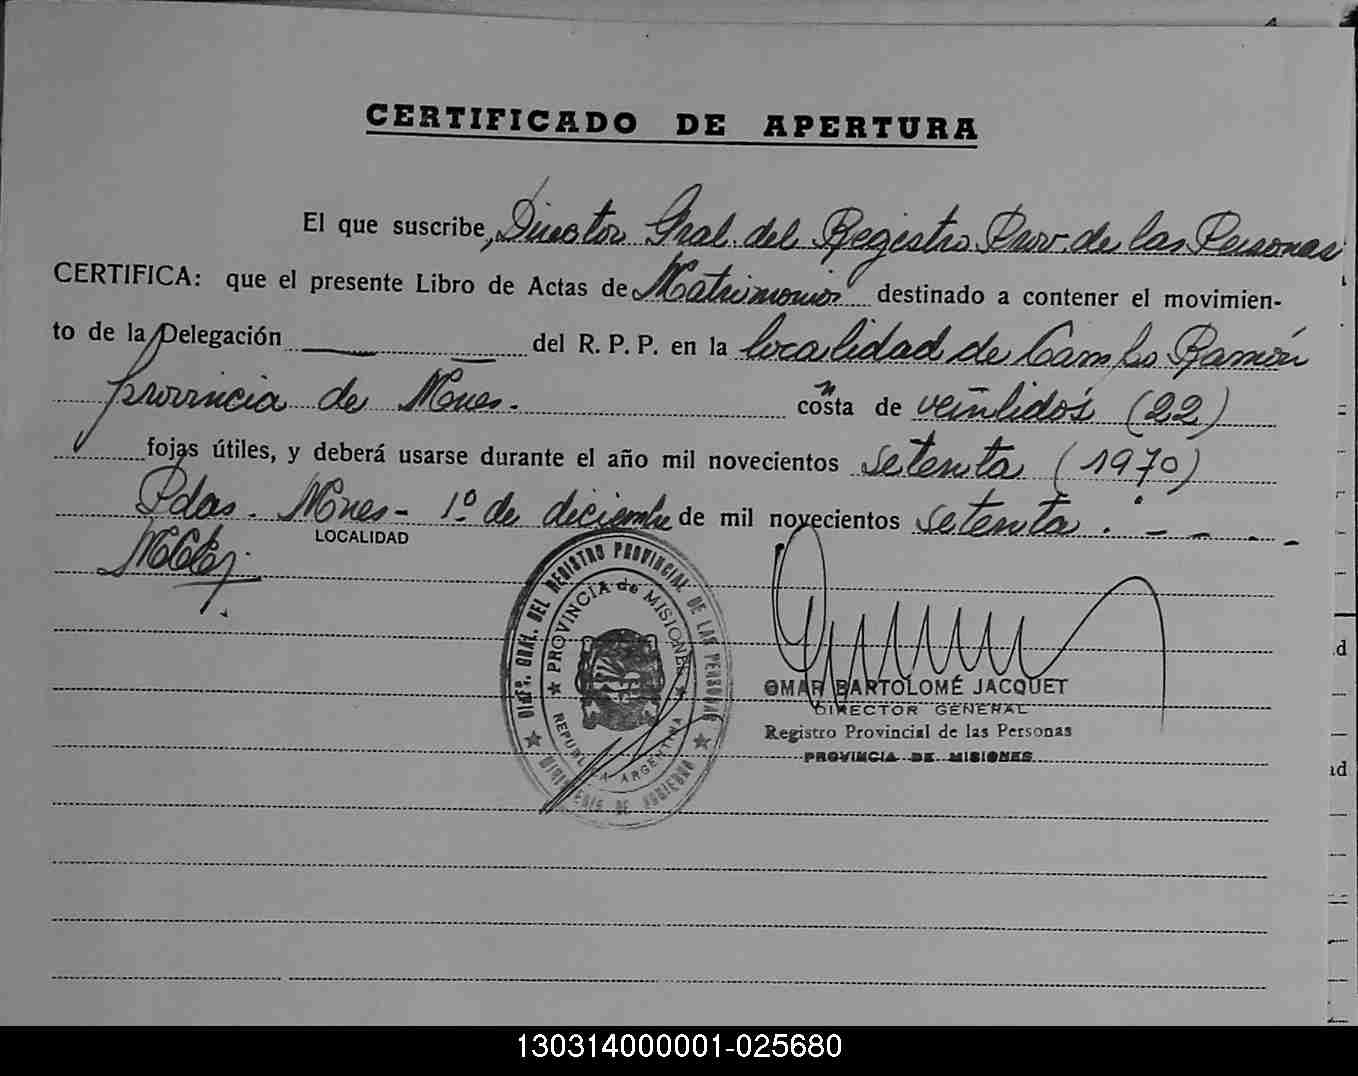 CERTIFICADO DE APERTURA
El que suscribe, Director Gral. del Registro Prov. de las Personas
CERTIFICA: que el presente Libro de Actas de Matrimonios destinado a contener el movimien-
to de la Delegación del R. P. P. en la localidad de Campo Ramón
provincia de Mnes. consta de veintidós (22)
fojas útiles, y deberá usarse durante el año mil novecientos setenta (1970)
Pdas. Mnes - 1º de diciembre de mil novecientos setenta. - - - -
LOCALIDAD
DIRec. GRAL. DEL REGISTRO PROVINCIAL DE LAS PERSONAS
PROVINCIA de MISIONES
REPUBLICA ARGENTINA
MINISTERIO DE GOBIERNO
OMAR BARTOLOMÉ JACQUET
DIRECTOR GENERAL
Registro Provincial de las Personas
PROVINCIA DE MISIONES
d
ad
130314000001-025680